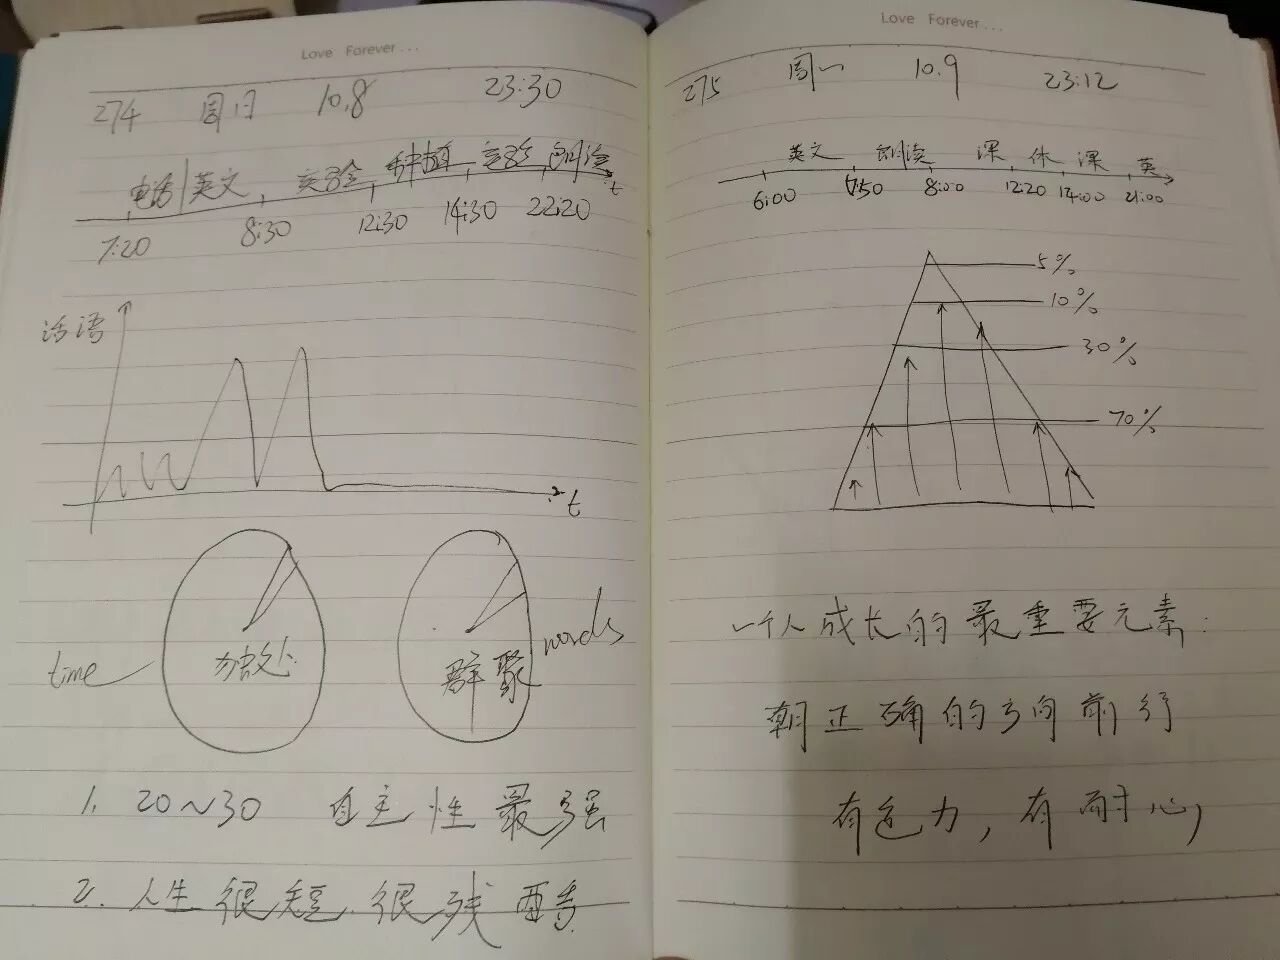 Love Forever...
274 周日 10.8 23:30
电话 英文 实验 种植 实验 朗读 t
7:20 8:30 12:30 14:30 22:20
话语
t
time 独处 群聚 words
1. 20~30 自主性最强
2. 人生很短.很残酷
Love Forever...
275 周一 10.9 23:12
英文 朗读 课 休 课 英
6:00 7:50 8:00 12:20 14:00 21:00
5%
10%
30%
70%
一个人成长的最重要元素:
朝正确的方向前行
有定力,有耐心,